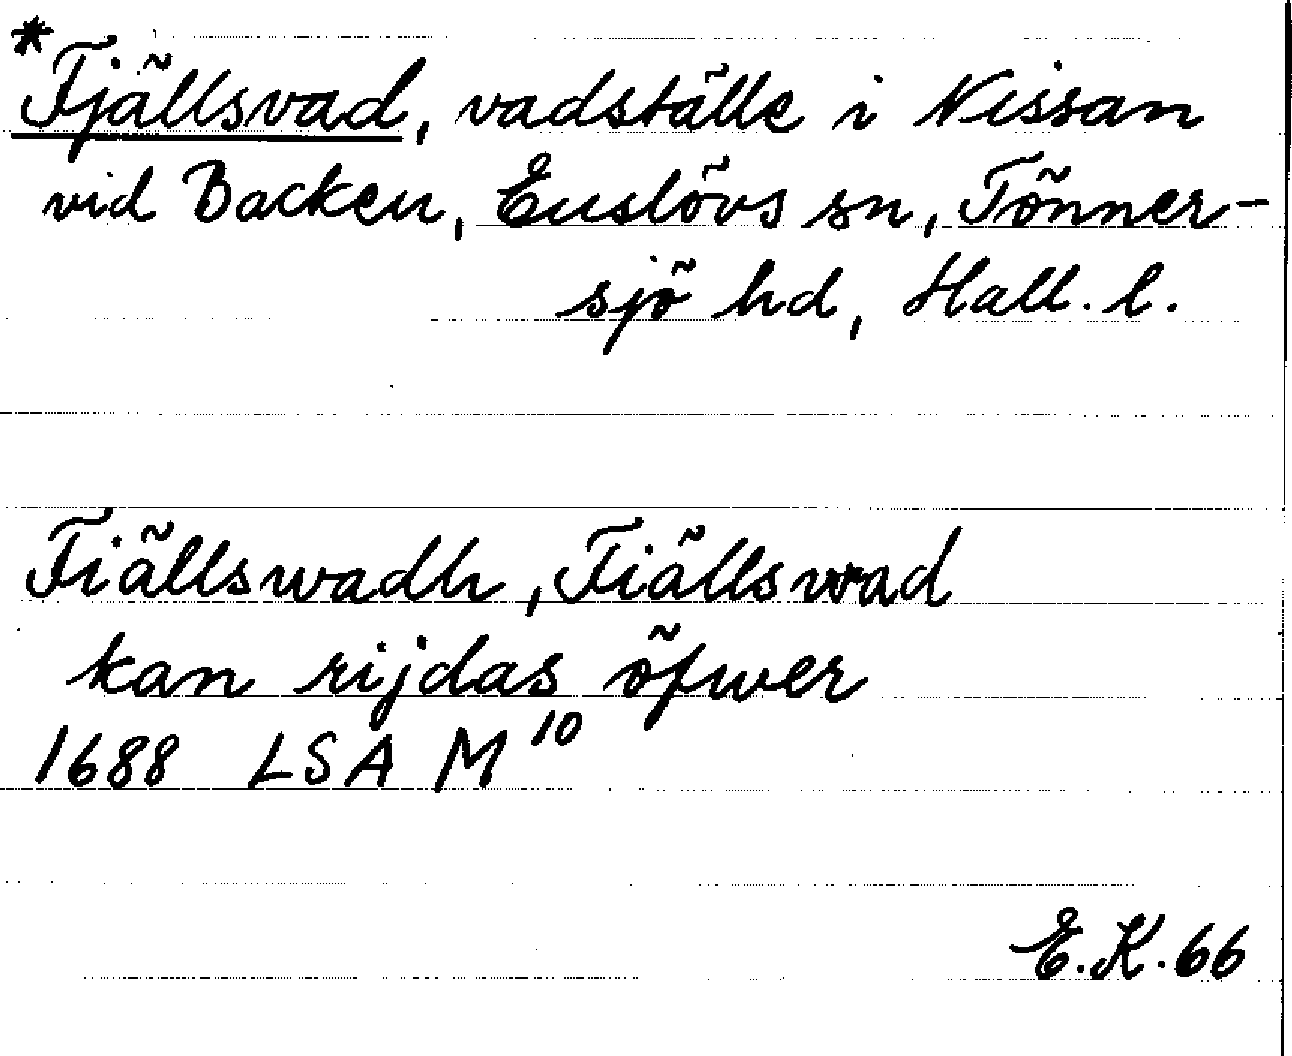 *Fjällsvad, vadställe i Nissan
vid Backen, Enslövs sn, Tönner-
sjö hd, Hall. l.
Fiällswadh, Fiällswad
kan rijdas öfwer
1688 LSA M¹⁰
E.K. 66